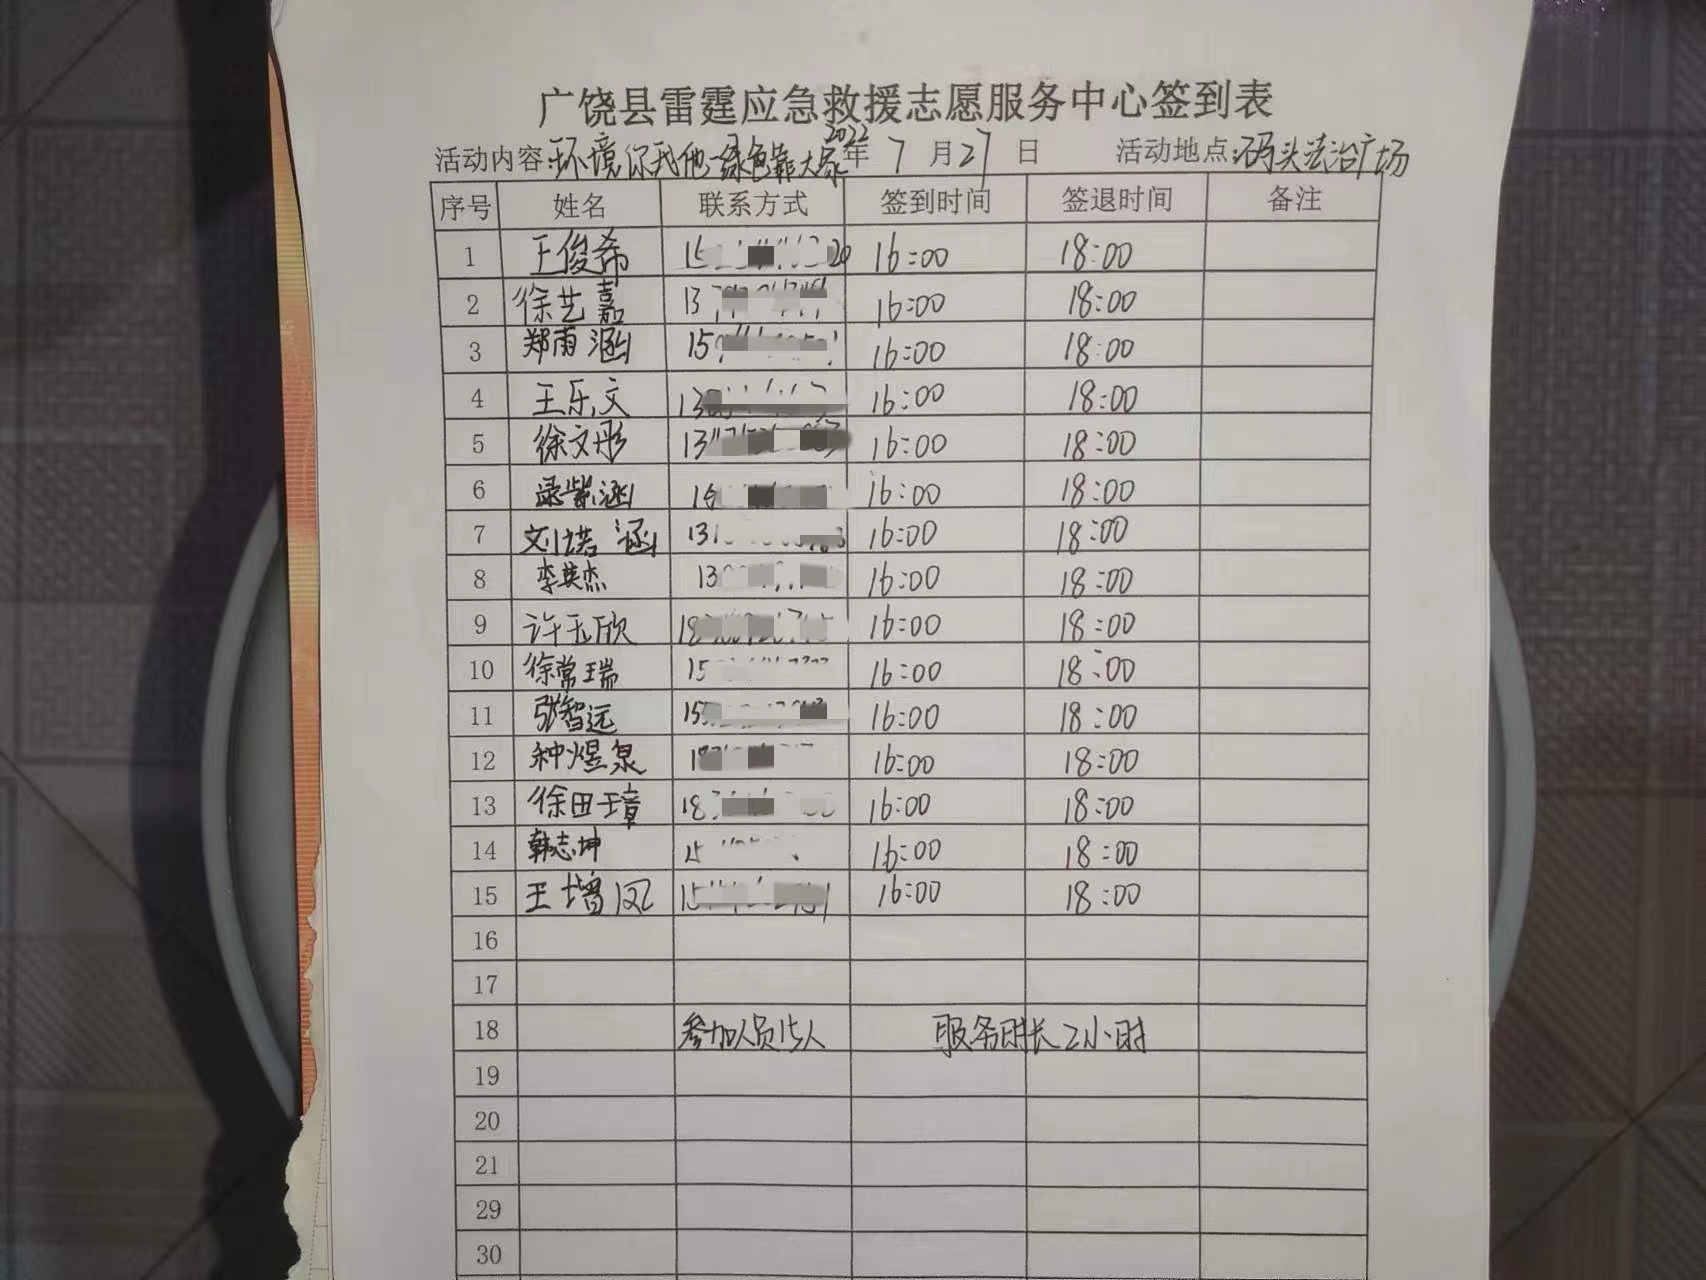 广饶县雷霆应急救援志愿服务中心签到表
活动内容:环境你我他 绿色靠大家 2022年 7月27日 活动地点:码头法治广场
序号 姓名 联系方式 签到时间 签退时间 备注
1 王俊希 16:00 18:00
2 徐艺嘉 16:00 18:00
3 郑雨涵 16:00 18:00
4 王乐文 16:00 18:00
5 徐文彤 16:00 18:00
6 紫涵 16:00 18:00
7 刘诺涵 16:00 18:00
8 李英杰 16:00 18:00
9 许玉欣 16:00 18:00
10 徐常瑞 16:00 18:00
11 张智远 16:00 18:00
12 种煜泉 16:00 18:00
13 徐田璋 16:00 18:00
14 韩志坤 16:00 18:00
15 王增凤 16:00 18:00
16
17
18 参加人员15人 服务时长2小时
19
20
21
29
30